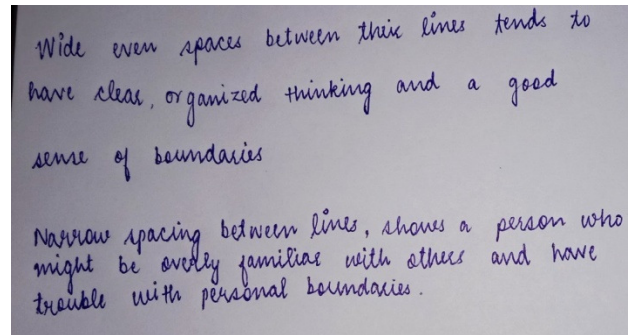 Wide even spaces between their lines tends to
have clear, organized thinking and a good
sense of boundaries
Narrow spacing between lines, shows a person who
might be overly familiar with others and have
trouble with personal boundaries.